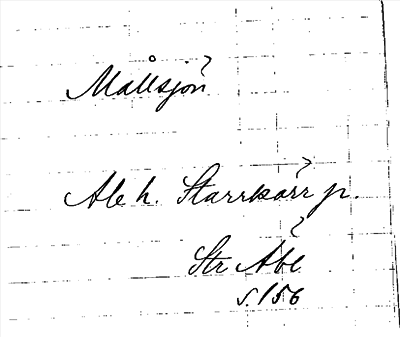 Mållsjön
Ale h. Starrkärr p.
Str Abl
s. 156